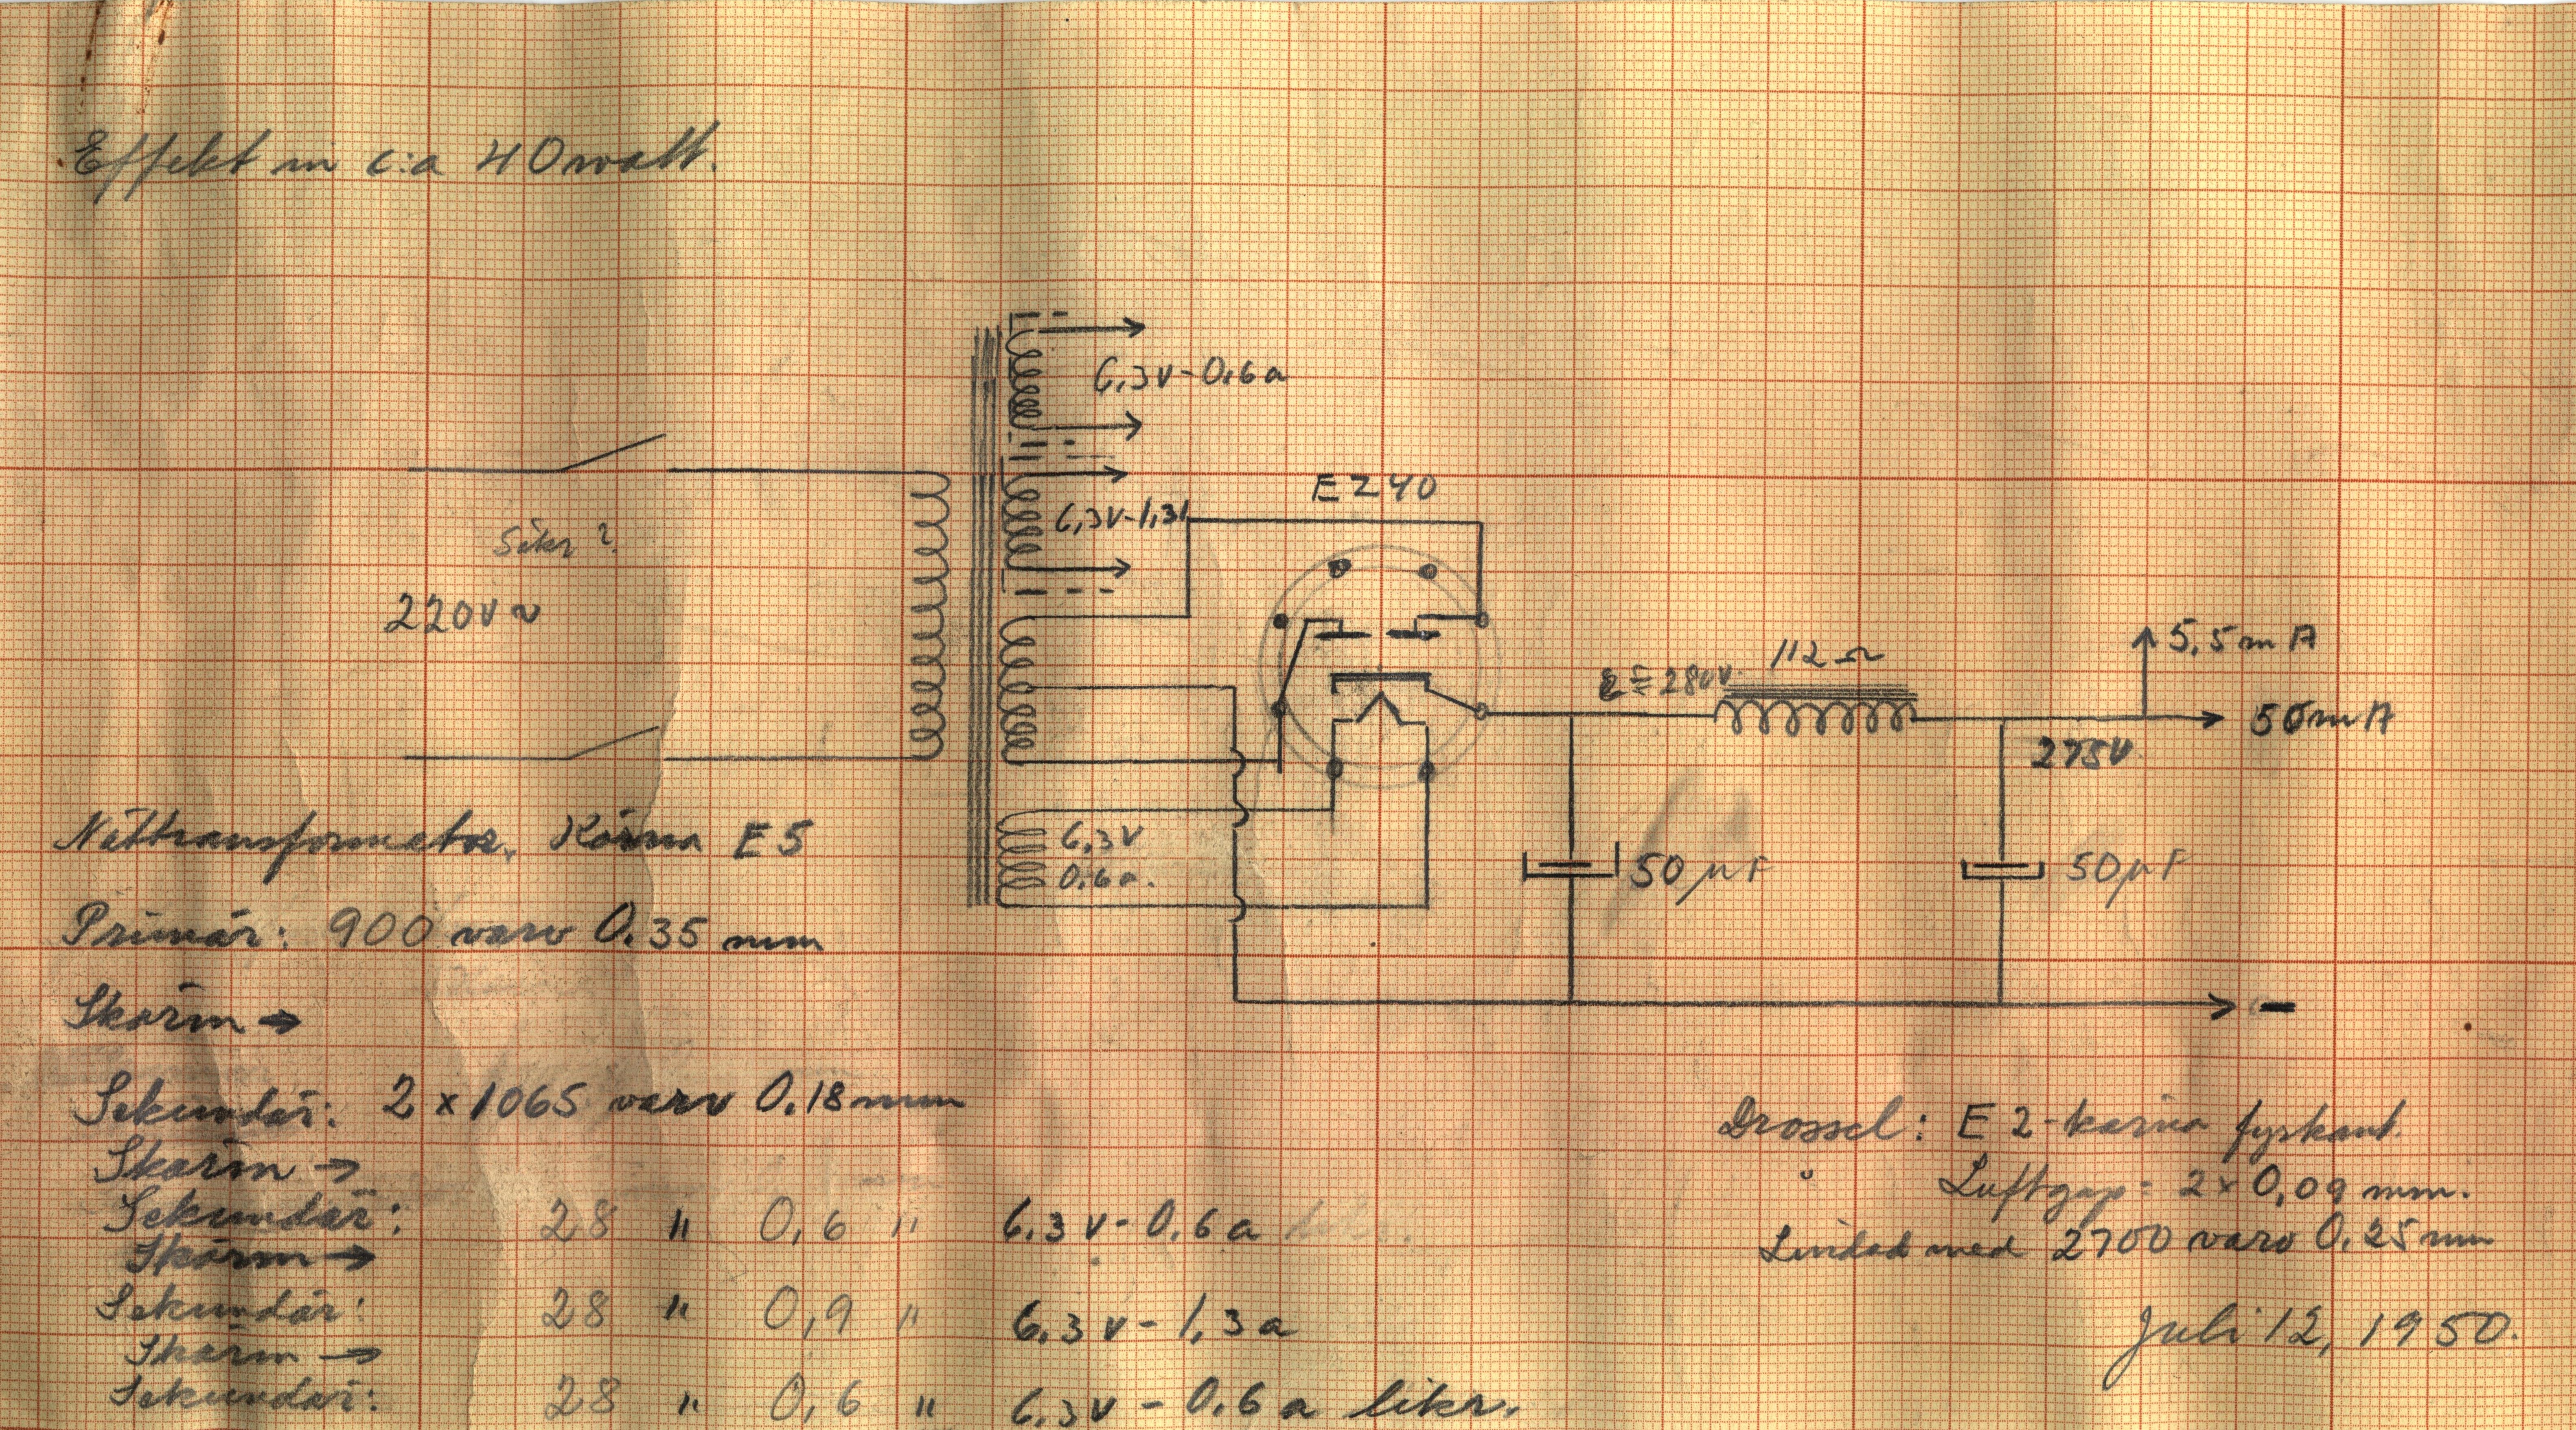 Effekt in c:a 40 watt.
6,3V-0,6a
EZ40
6,3V-1,3
Säkr ?
220V ~
5,5 mA
112 Ω
= 280V.
50mA
275V
Nättransformator. Kärna E5
6,3V
0,6a.
50 µF
50 µF
Primär: 900 varv 0.35 mm
Skärm →
→ -
Sekundär: 2 x 1065 varv 0.18 mm
Drossel: E2-kärna fyrkant.
Skärm →
Luftgap = 2 x 0,09 mm.
Sekundär: 28 " 0,6 " 6.3 v - 0.6 a
Lindad med 2700 varv 0.25 mm
Skärm →
Sekundär: 28 " 0,9 " 6.3 v - 1,3 a
Juli 12, 1950.
Skärm →
Sekundär: 28 " 0,6 " 6.3 v - 0.6 a likr.